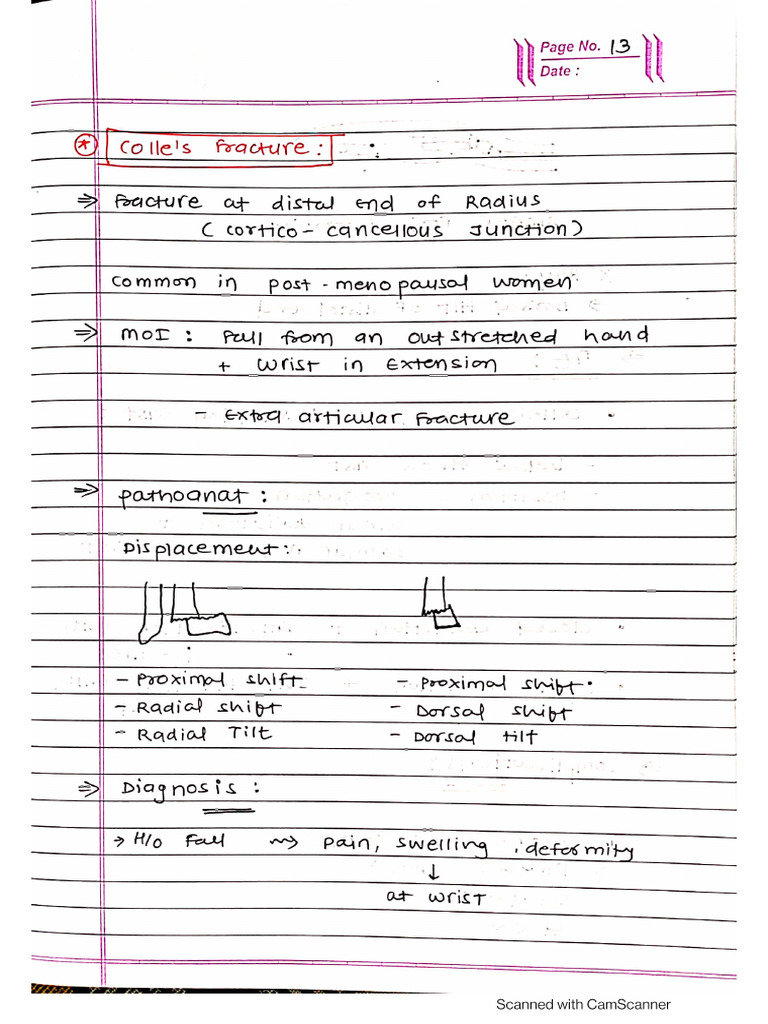 Page No. 13
Date :
* Colle's fracture :
⇒ fracture at distal End of Radius
( cortico - cancellous Junction )
common in post - menopausal women
⇒ MOI : Fall from an outstretched hand
+ Wrist in Extension
- Extra articular Fracture
⇒ pathoanat :
Displacement :
- Proximal shift - Proximal shift
- Radial shift - Dorsal shift
- Radial Tilt - Dorsal tilt
⇒ Diagnosis :
→ H/o Fall ⇝ pain, swelling, deformity
↓
at wrist
Scanned with CamScanner